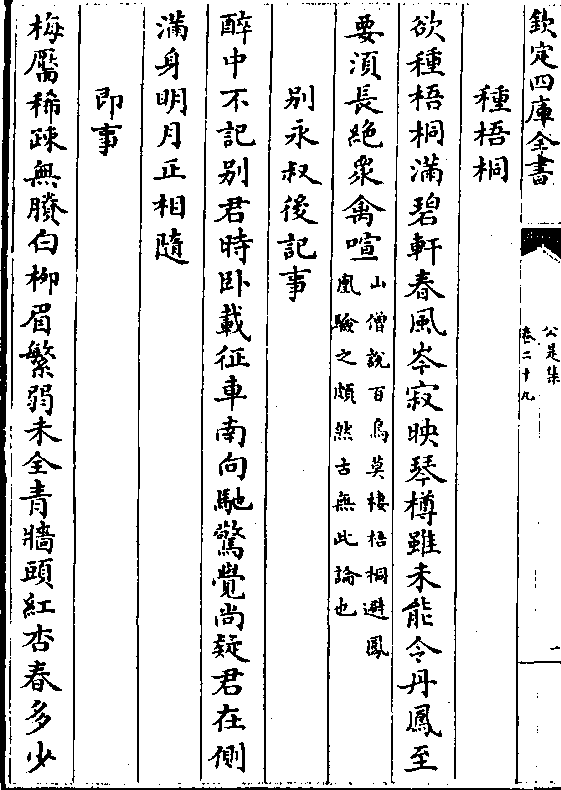 欽定四庫全書
公是集
卷二十九
種梧桐
欲種梧桐滿碧軒春風岑寂映琴樽雖未能令丹鳳至
要須長絶衆禽喧山僧説百鳥莫棲梧桐避鳳
凰驗之頗然古無此論也
别永叔後記事
醉中不記别君時卧載征車南向馳驚覺尚疑君在側
滿身明月正相隨
即事
梅靨稀疎無賸白柳眉繁弱未全青牆頭紅杏春多少